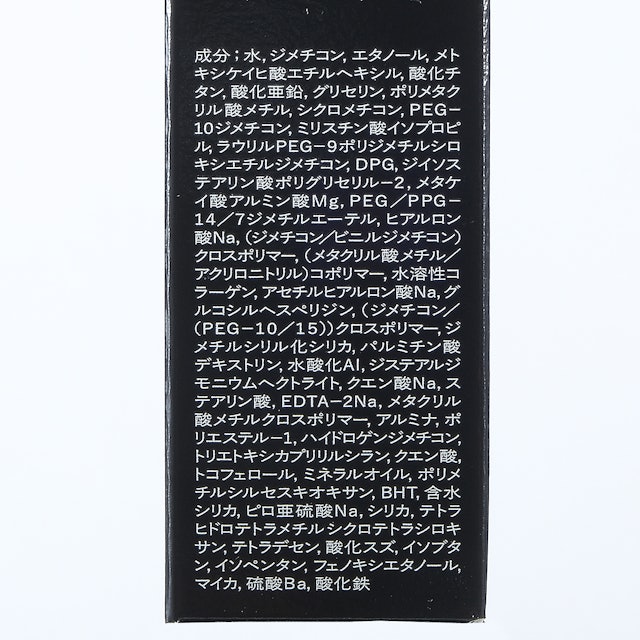 成分；水, ジメチコン, エタノール, メト
キシケイヒ酸エチルヘキシル, 酸化チ
タン, 酸化亜鉛, グリセリン, ポリメタク
リル酸メチル, シクロメチコン, PEG−
10ジメチコン, ミリスチン酸イソプロピ
ル, ラウリルPEG−9ポリジメチルシロ
キシエチルジメチコン, DPG, ジイソス
テアリン酸ポリグリセリル−2, メタケ
イ酸アルミン酸Mg, PEG／PPG−
14／7ジメチルエーテル, ヒアルロン
酸Na, (ジメチコン/ビニルジメチコン)
クロスポリマー, (メタクリル酸メチル/
アクリロニトリル)コポリマー, 水溶性コ
ラーゲン, アセチルヒアルロン酸Na, グ
ルコシルヘスペリジン, (ジメチコン/
(PEG−10／15))クロスポリマー, ジ
メチルシリル化シリカ, パルミチン酸
デキストリン, 水酸化Al, ジステアルジ
モニウムヘクトライト, クエン酸Na, ス
テアリン酸, EDTA−2Na, メタクリル
酸メチルクロスポリマー, アルミナ, ポ
リエステル−1, ハイドロゲンジメチコン,
トリエトキシカプリリルシラン, クエン酸,
トコフェロール, ミネラルオイル, ポリメ
チルシルセスキオキサン, BHT, 含水
シリカ, ピロ亜硫酸Na, シリカ, テトラ
ヒドロテトラメチルシクロテトラシロキ
サン, テトラデセン, 酸化スズ, イソブタ
ン, イソペンタン, フェノキシエタノール,
マイカ, 硫酸Ba, 酸化鉄